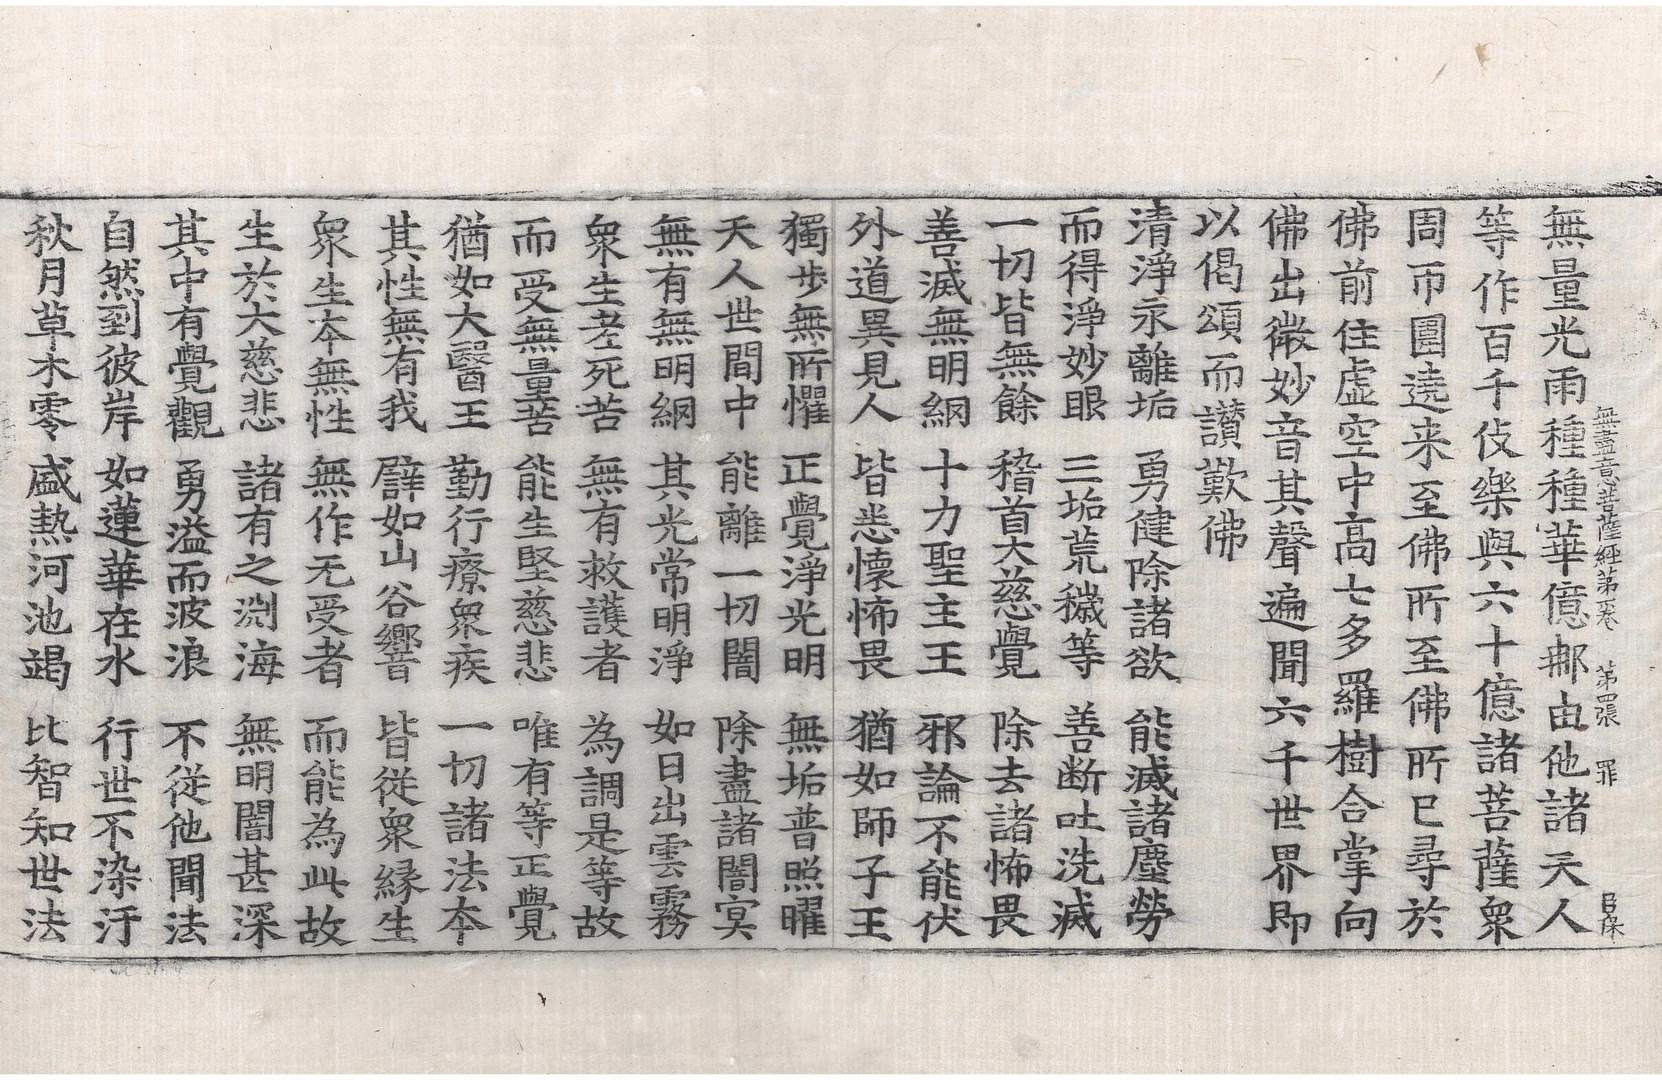 無盡意菩薩經第一卷 第四張 罪
無量光雨種種華億那由他諸天人
等作百千伎樂與六十億諸菩薩衆
周帀圍遶来至佛所至佛所已尋於
佛前住虛空中高七多羅樹合掌向
佛出微妙音其聲遍聞六千世界即
以偈頌而讃歎佛
清淨永離垢 勇健除諸欲 能滅諸塵勞
而得淨妙眼 三垢荒穢等 善断吐洗滅
一切皆無餘 稽首大慈覺 除去諸怖畏
善滅無明網 十力聖主王 邪論不能伏
外道異見人 皆悉懷怖畏 猶如師子王
獨步無所懼 正覺淨光明 無垢普照曜
天人世間中 能離一切闇 除盡諸闇冥
無有無明網 其光常明淨 如日出雲霧
衆生老死苦 無有救護者 為調是等故
而受無量苦 能生堅慈悲 唯有等正覺
猶如大醫王 勤行療衆疾 一切諸法本
其性無有我 譬如山谷響 皆從衆縁生
衆生本無性 無作无受者 而能為此故
生於大慈悲 諸有之渕海 無明闇甚深
其中有覺觀 勇溢而波浪 不従他聞法
自然到彼岸 如蓮華在水 行世不染汙
秋月草木零 盛熱河池竭 比智知世法